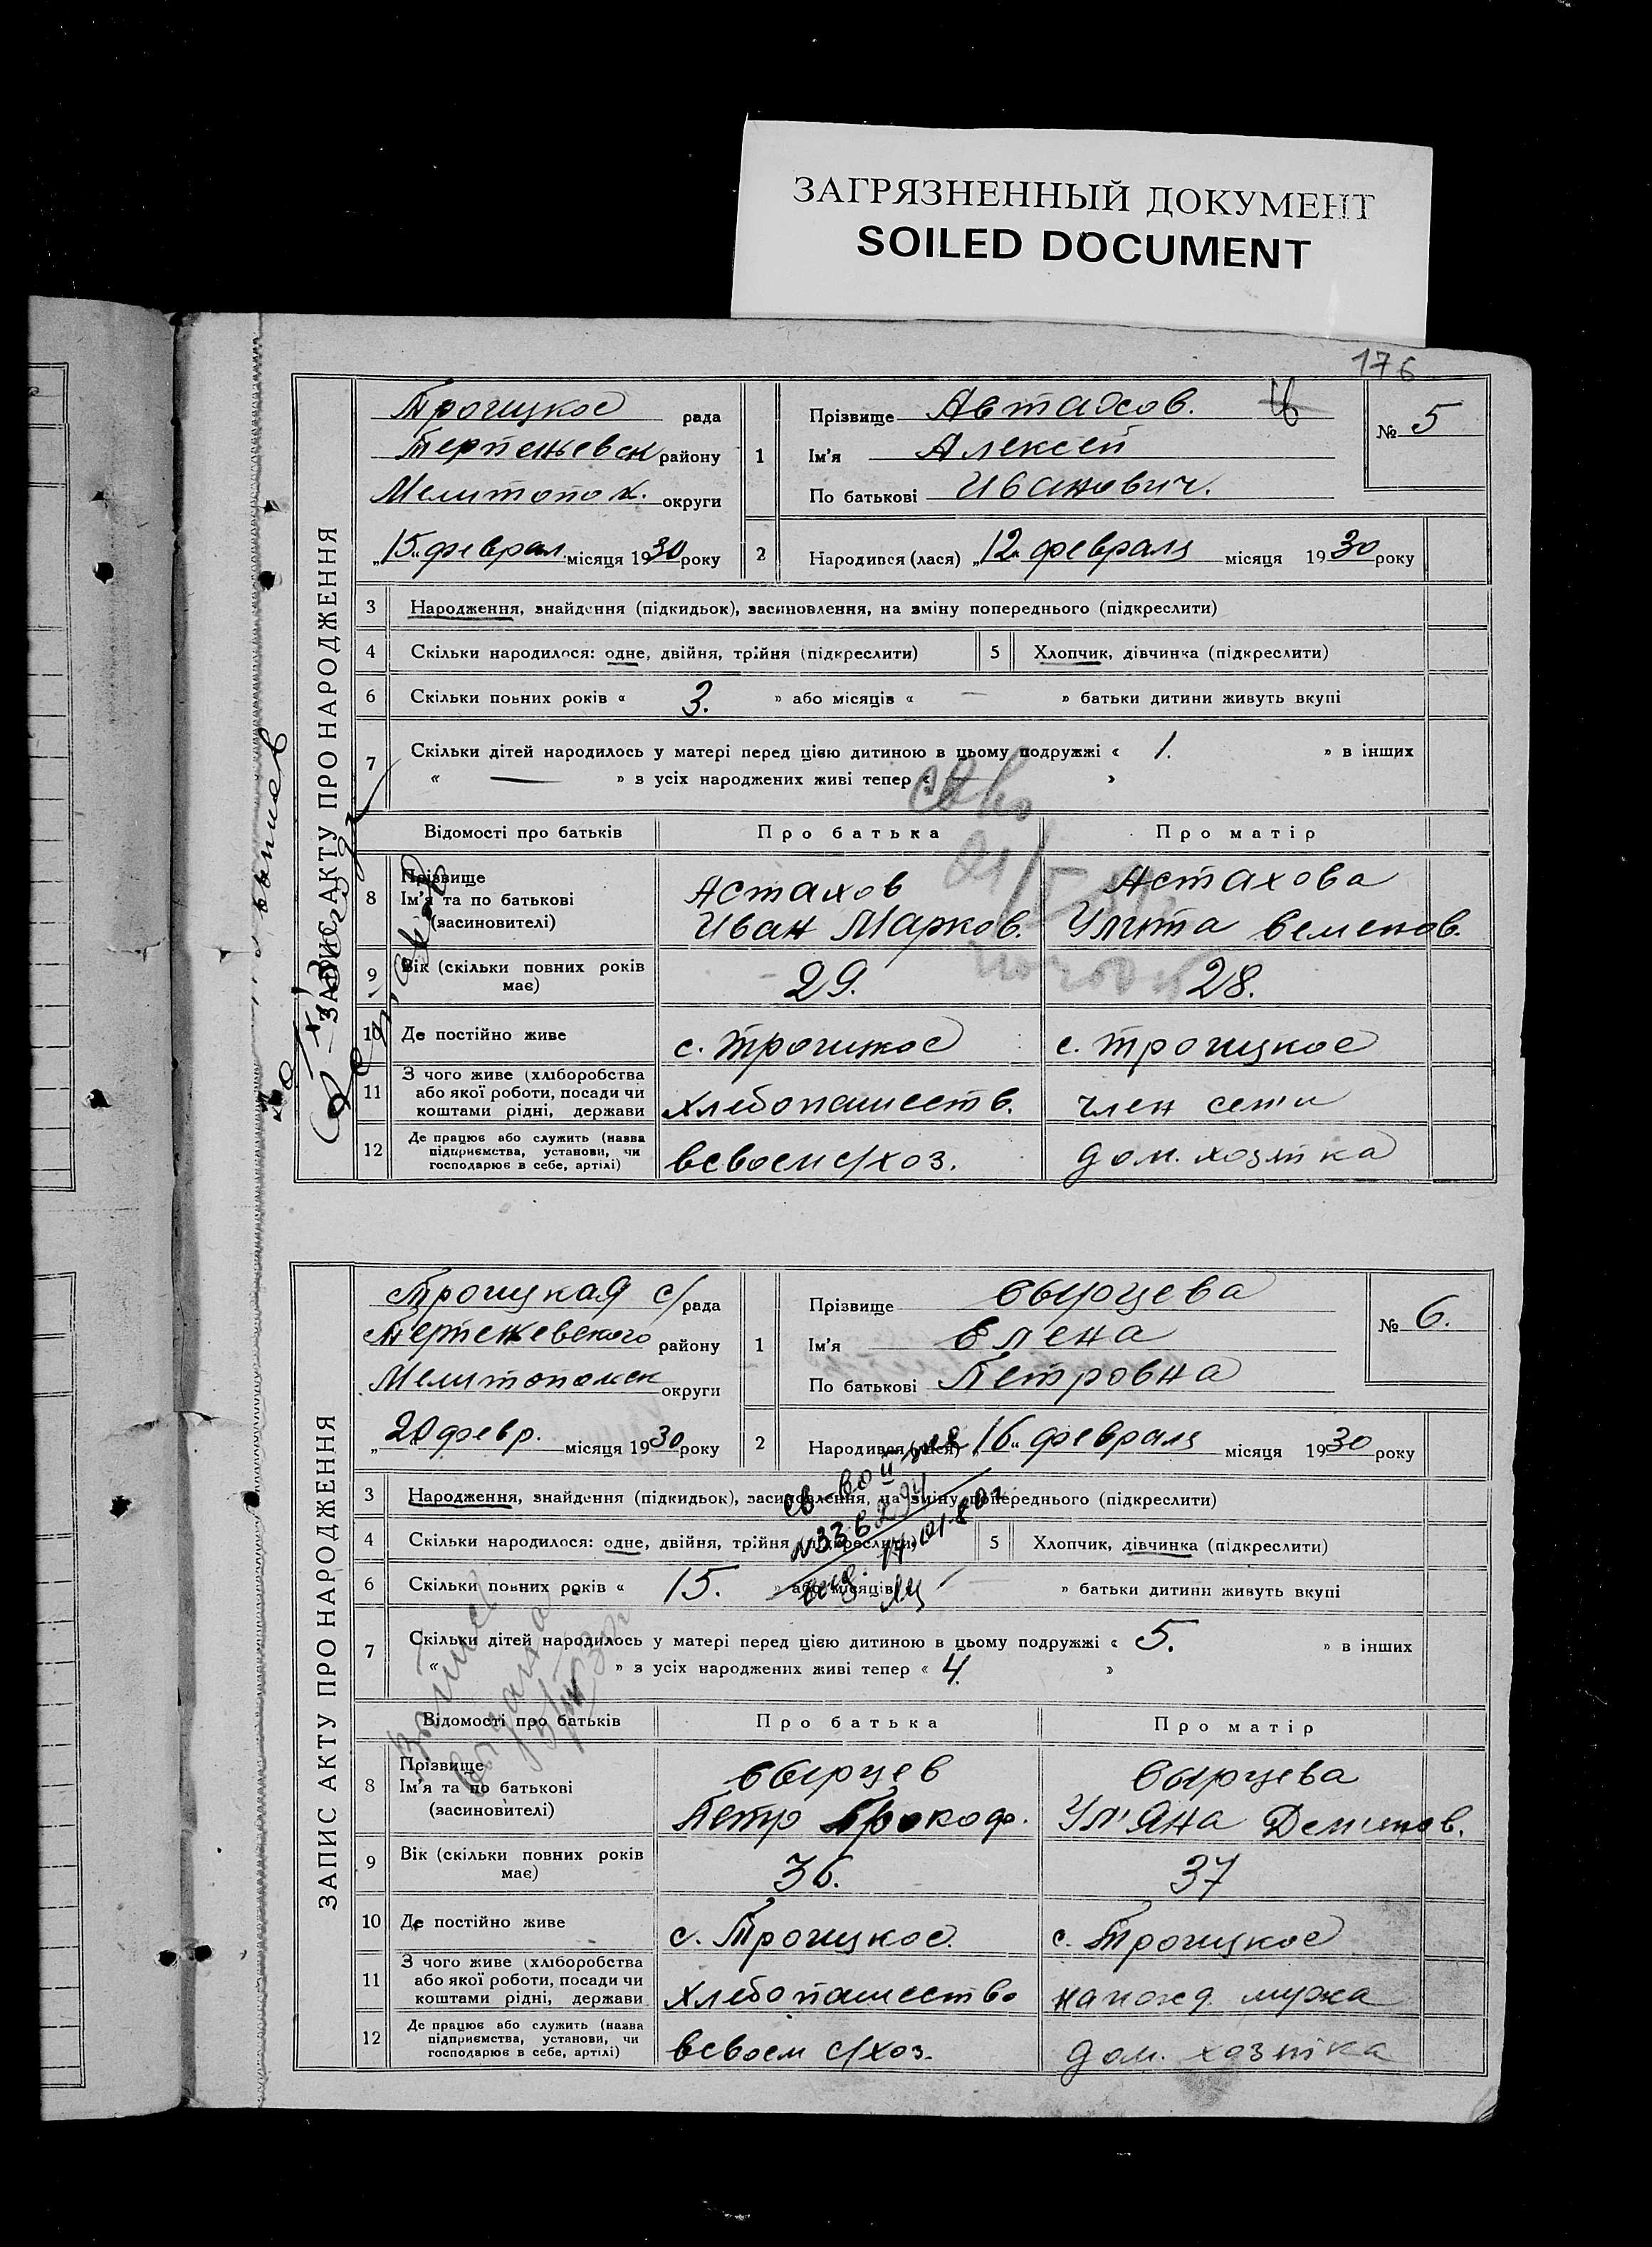 ЗАГРЯЗНЕННЫЙ ДОКУМЕНТ
SOILED DOCUMENT
176
ЗАПИС АКТУ ПРО НАРОДЖЕННЯ
Троицкое рада
Терпеньевск району
Мелитопол. округи
„15“ феврал. місяця 1930 року
1
Прізвище Автахов.
Ім'я Алексей
По батькові Иванович.
№ 5
2 Народився (лася) „12“ февраля місяця 1930 року
3 Народження, знайдення (підкидьок), засиновлення, на зміну попереднього (підкреслити)
4 Скільки народилося: одне, двійня, трійня (підкреслити) 5 Хлопчик, дівчинка (підкреслити)
6 Скільки повних років « 3. » або місяців « — » батьки дитини живуть вкупі
7 Скільки дітей народилось у матері перед цією дитиною в цьому подружжі « 1. » в інших
« — » з усіх народжених живі тепер « »
Відомості про батьків Про батька Про матір
8 Прізвище
Ім'я та по батькові
(засиновителі)
Астахов
Иван Марков.
Астахова
Улита Семенов.
9 Вік (скільки повних років має) 29. 28.
10 Де постійно живе с. Троицкое с. Троицкое
11 З чого живе (хліборобства
або якої роботи, посади чи
коштами рідні, держави
хлебопашеств. член семи
12 Де працює або служить (назва
підприємства, установи, чи
господарює в себе, артілі)
в своем с/хоз. дом. хозяйка
ЗАПИС АКТУ ПРО НАРОДЖЕННЯ
Троицкая с/рада
Терпеньевского району
Мелитопольск округи
„20 февр. місяця 1930 року
1
Прізвище Сырцева
Ім'я Елена
По батькові Петровна
№ 6.
2 Народився (лася) „16“ февраля місяця 1930 року
3 Народження, знайдення (підкидьок), засиновлення, на зміну попереднього (підкреслити)
4 Скільки народилося: одне, двійня, трійня (підкреслити) 5 Хлопчик, дівчинка (підкреслити)
6 Скільки повних років « 15. » або місяців « — » батьки дитини живуть вкупі
7 Скільки дітей народилось у матері перед цією дитиною в цьому подружжі « 5. » в інших
« » з усіх народжених живі тепер « 4. »
Відомості про батьків Про батька Про матір
8 Прізвище
Ім'я та по батькові
(засиновителі)
Сырцев
Петр Прокоф.
Сырцева
Ул'яна Дементов.
9 Вік (скільки повних років має) 36. 37
10 Де постійно живе с. Троицкое. с. Троицкое
11 З чого живе (хліборобства
або якої роботи, посади чи
коштами рідні, держави
хлебопашество на ижд. мужа
12 Де працює або служить (назва
підприємства, установи, чи
господарює в себе, артілі)
в своем с/хоз. дом. хозяйка